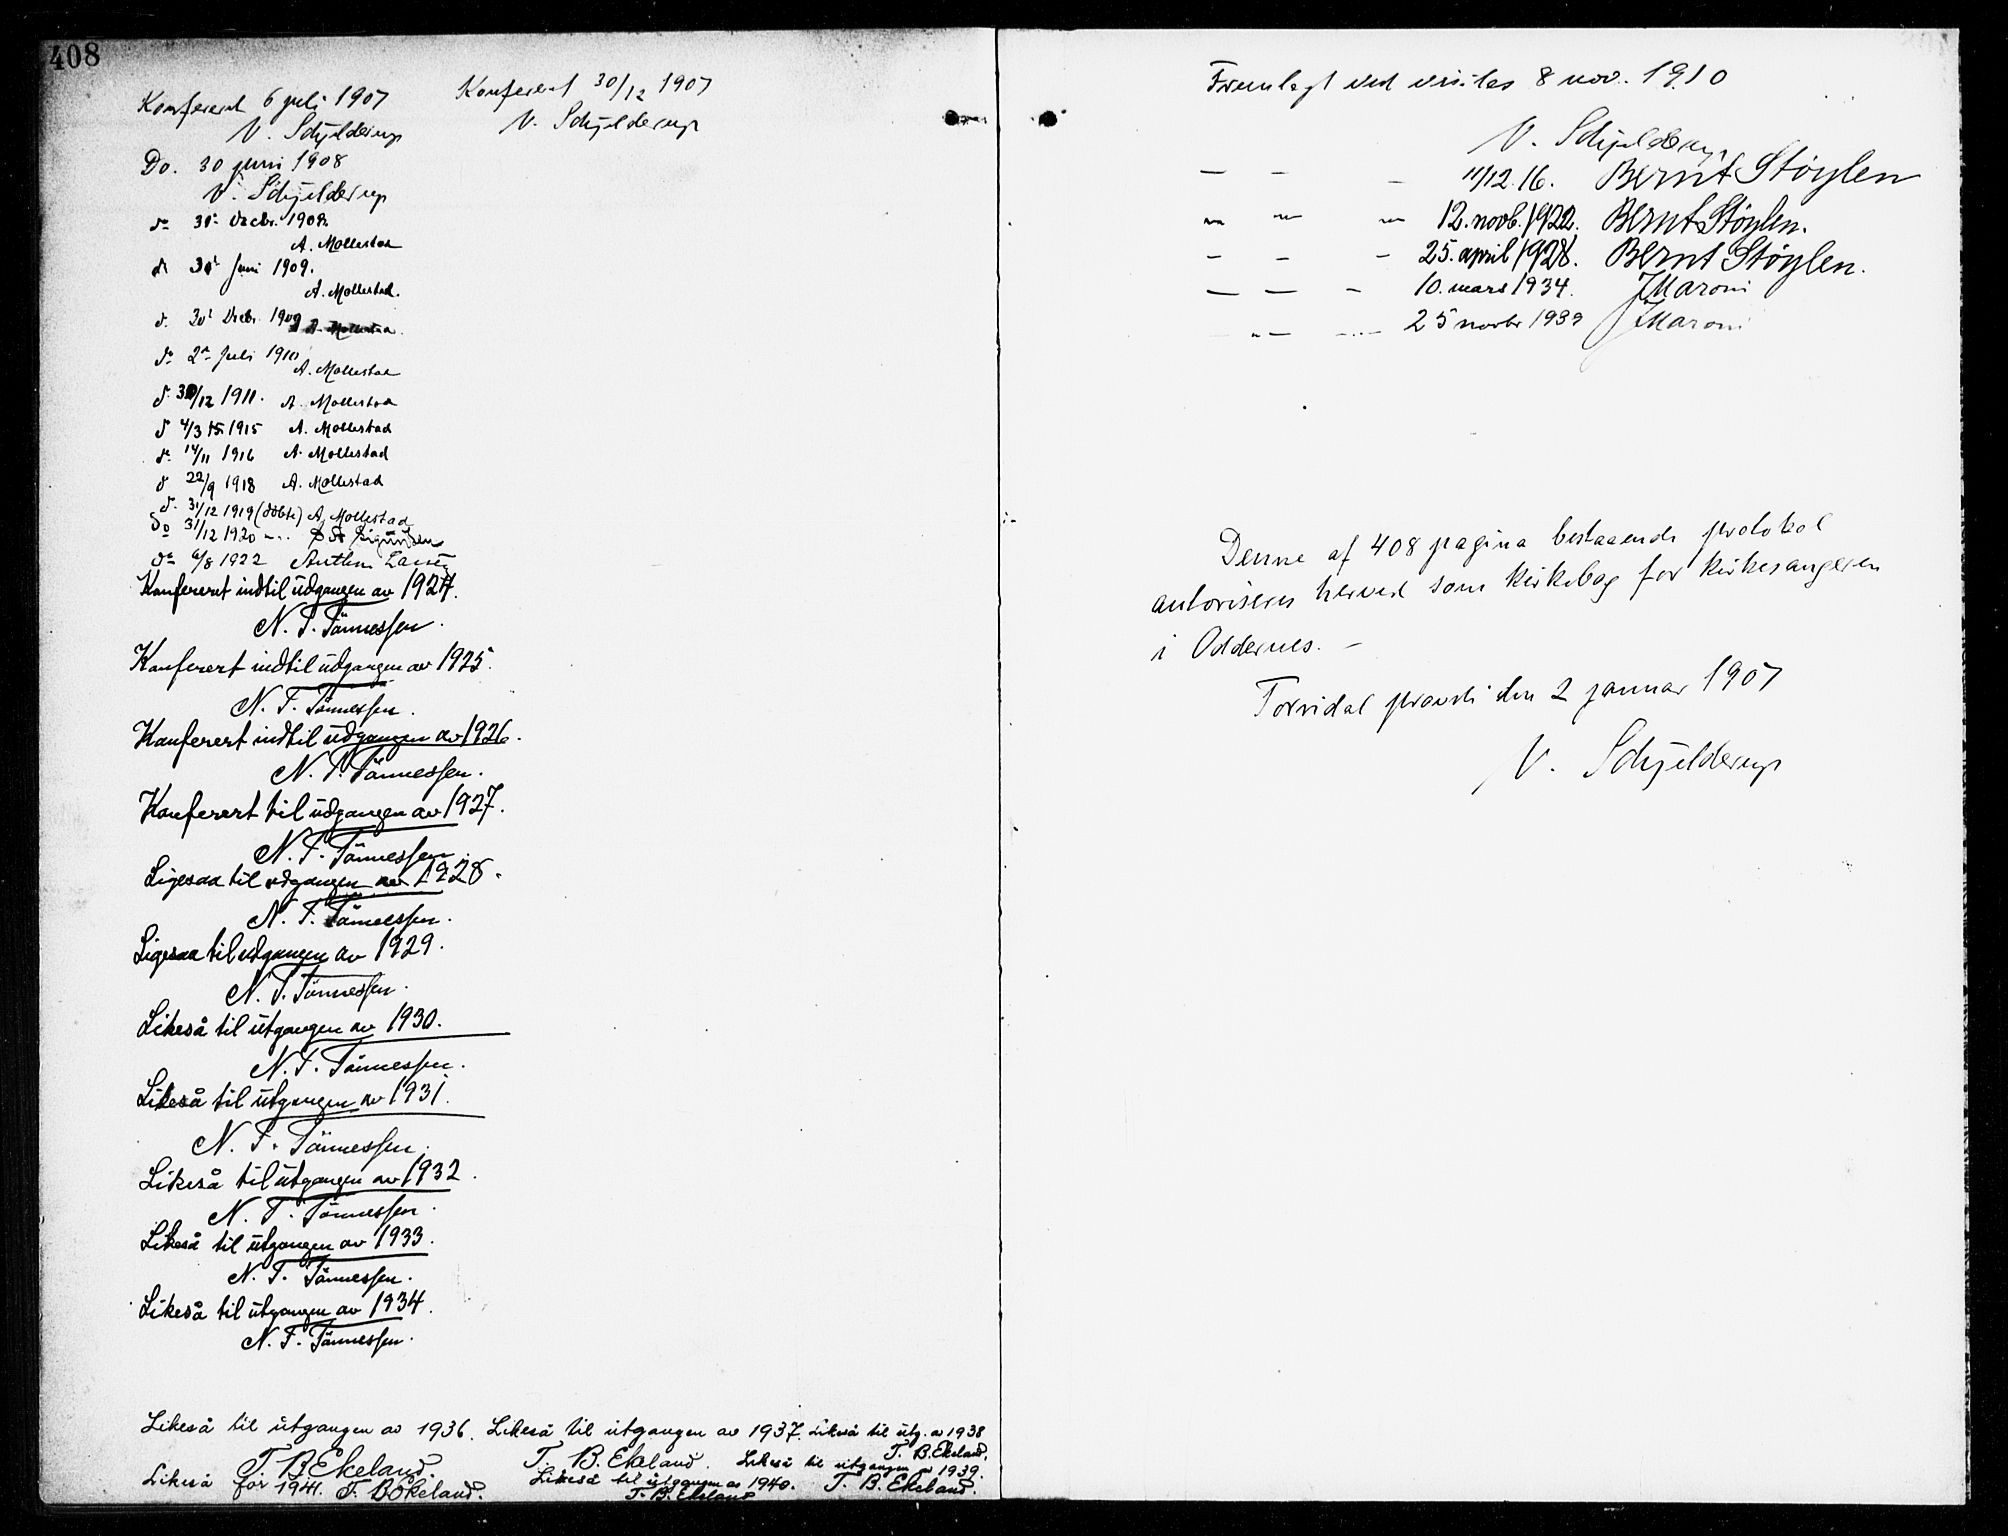 408
Konfereret 6 juli 1907
V. Schjelderup
Konfereret 30/12 1907
V. Schjelderup
Do. 30 juni 1908
V. Schjelderup
do 31. Decbr. 1908.
A. Mollestad
do 30. Juni 1909.
A. Mollestad.
d. Decbr. 1909 A. Mollestad.
do 2. Juli 1910
A. Mollestad
d. 30/12 1911. A. Mollestad
d 4/3 1915 A. Mollestad
do 14/11 1916 A. Mollestad
d 22/9 1918 A. Mollestad
d. 31/12 1919 (döbte) A. Mollestad
Do 31/12 1920
do 6/8 1922
Konferert indtil üdgangen av 1924.
N. F. Tönnessen.
Konferert indtil üdgangen av 1925.
N. F. Tönnessen.
Konferert indtil üdgangen av 1926.
N. F. Tönnessen.
Konferert til üdgangen av 1927.
N. F. Tönnessen.
Ligesaa til udgangen av 1928.
N. F. Tönnessen.
Ligesaa til udgangen av 1929.
N. F. Tönnessen.
Likeså til ütgangen av 1930.
N. F. Tönnessen.
Likeså til ütgangen av 1931.
N. F. Tönnessen.
Likeså til ütgangen av 1932.
N. F. Tönnessen.
Likeså til ütgangen av 1933.
N. F. Tönnessen.
Likeså til ütgangen av 1934.
N. F. Tönnessen.
Likeså til ütgangen av 1936.
T. B. Ekeland.
Likeså til ütgangen av 1937.
T. B. Ekeland.
Likeså til ütg. av 1938
T. B. Ekeland.
Likeså til ütgangen av 1939.
T. B. Ekeland.
Likeså til ütgangen av 1940.
T. B. Ekeland
Likeså for 1941. T. B. Ekeland.
Fremlagt ved visitas 8 nov. 1910
V. Schjelderup
— — — 11/12.16. Bernt Støylen
— — — 12. novb. 1922. Bernt Støylen.
— — — 25. april 1928. Bernt Støylen.
— — — 10. mars 1934. J Maroni
— — — 25 novbr 1939 J Maroni
Denne af 408 pagina bestaaende protokol
autoriseres herved som kirkebog for kirkesangeren
i Oddernes. —
Torridal provsti den 2 januar 1907
V. Schjelderup